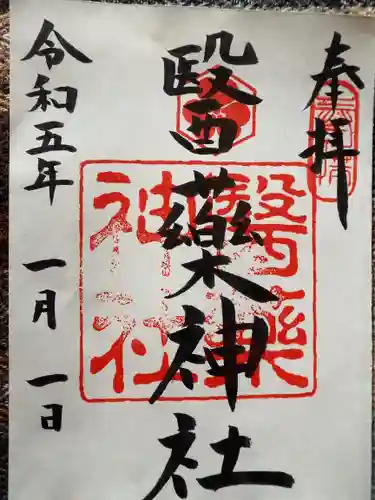 奉拝
醫藥神社
令和五年 一月 一日
醫藥
神社